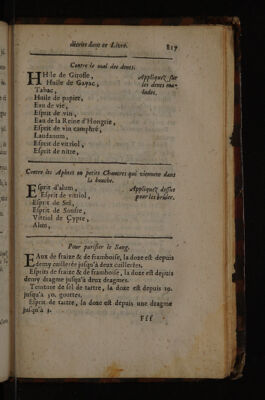 décrites dans ce Livre. 817
Contre le mal des dents.
HUile de Girofle,
Huile de Gayac,
Tabac,
Huile de papier,
Eau de vie,
Esprit de vin,
Eau de la Reine d'Hongrie,
Esprit de vin camphré,
Laudanum,
Esprit de vitriol,
Esprit de nitre,
Appliquez sur
les dents ma-
lades.
Contre les Aphtes ou petits Chancres qui viennent dans
la bouche.
ESprit d'alum,
Esprit de vitriol,
Esprit de Sel,
Esprit de Soufre,
Vitriol de Cypre,
Alum,
Appliquez dessus
pour les brûler.
Pour purifier le Sang.
EAux de fraize & de framboise, la doze est depuis
demy cuillerée jusqu'à deux cuillerées.
Esprits de fraize & de framboise, la doze est depuis
demy dragme jusqu'à deux dragmes.
Teinture de sel de tartre, la doze est depuis 10.
jusqu'à 30. gouttes.
Esprit de tartre, la doze est depuis une dragme
jusqu'à 3.
Fff